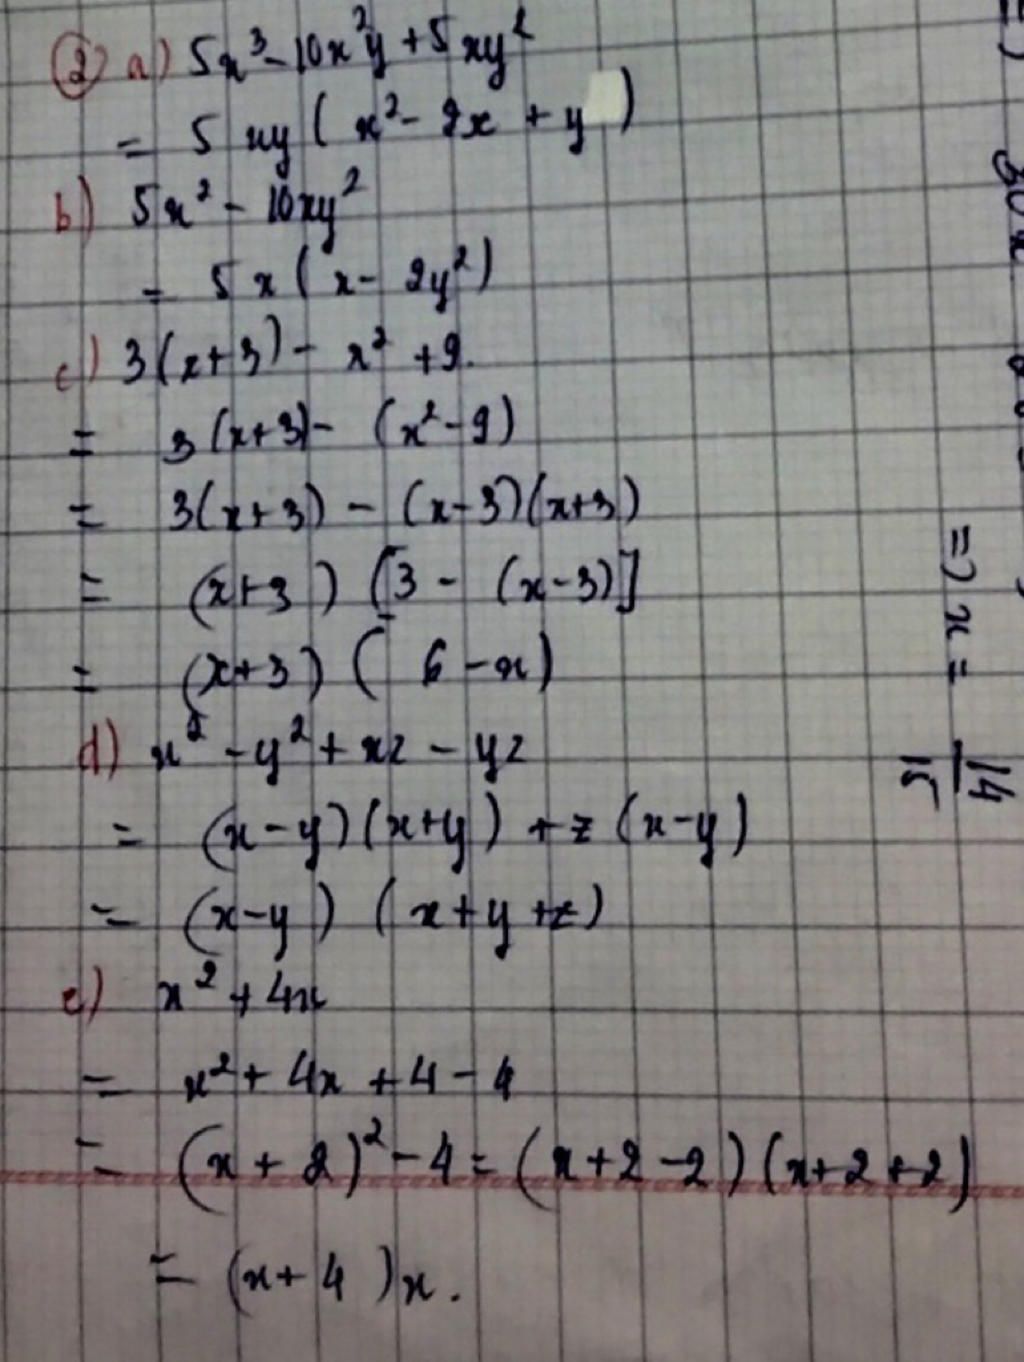 ② a) 5x³ - 10x²y + 5xy²
= 5xy ( x² - 2x + y )
b) 5x² - 10xy²
= 5x ( x - 2y² )
c) 3(x+3) - x² + 9.
= 3(x+3) - (x² - 9)
= 3(x+3) - (x-3)(x+3)
= (x+3) [3 - (x-3)]
= (x+3) ( 6 - x)
d) x² - y² + xz - yz
= (x-y)(x+y) + z(x-y)
= (x-y) (x+y+z)
e) x² + 4x
= x² + 4x + 4 - 4
= (x + 2)² - 4 = (x+2-2)(x+2+2)
= (x+4)x.
=) x = 14/15